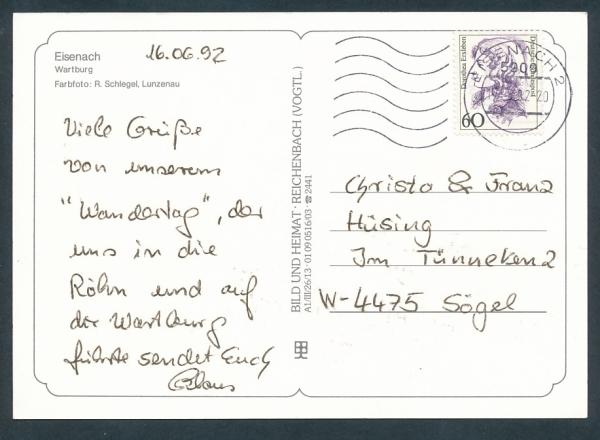 Eisenach
Wartburg
Farbfoto: R. Schlegel, Lunzenau
16.06.92
Viele Grüße
von unserem
"Wandertag", der
uns in die
Röhn und auf
die Wartburg
führte sendet Euch
Klaus
BILD UND HEIMAT · REICHENBACH (VOGTL.)
A1/III/26/13 · 01 09 0516/03 · ☎ 2441
Dorothea Erxleben
Deutsche Bundespost
60
Christa & Franz
Hüsing
Im Tünneken 2
W-4475 Sögel